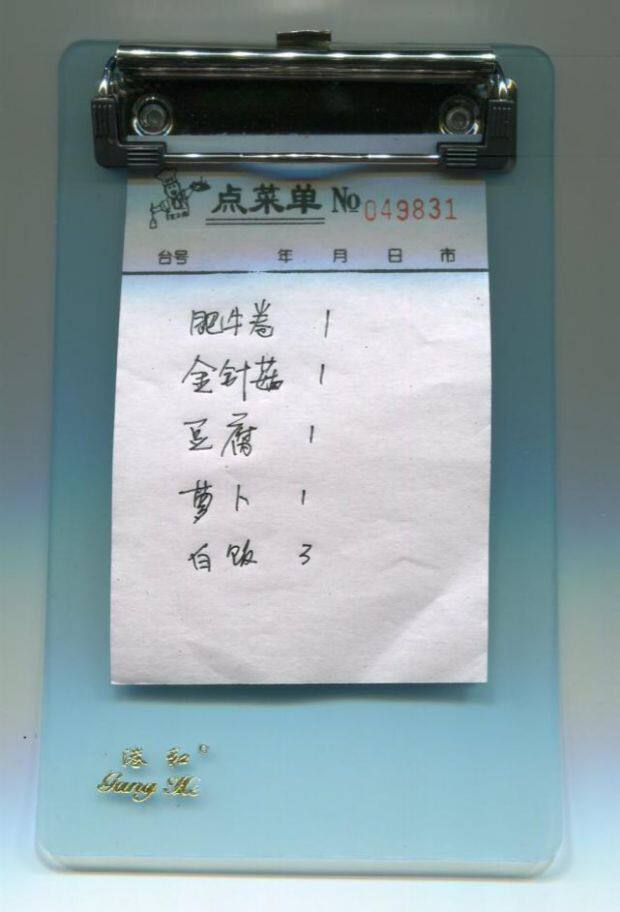 点菜单 № 049831
台号 年 月 日 市
肥牛卷 1
金针菇 1
豆腐 1
萝卜 1
白饭 3
港和®
Gang He